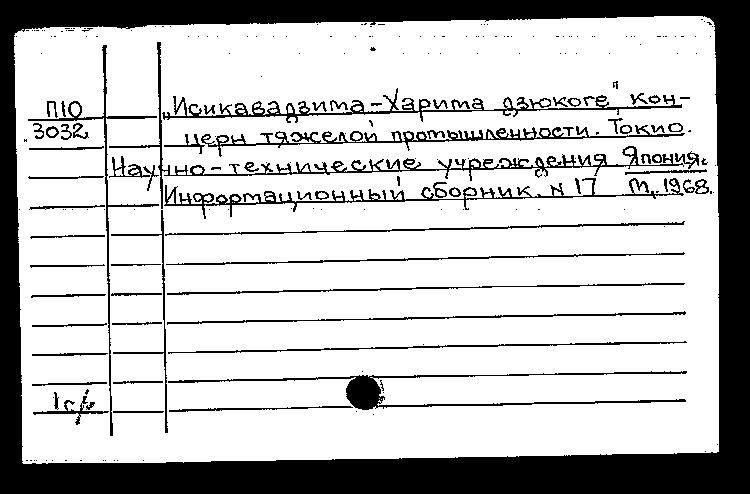 П10
3032
„Исикавадзима-Харима дзюкоге", кон-
церн тяжелой промышленности. Токио.
Научно-технические учреждения Япония.
Информационный сборник. N 17 М., 1968.